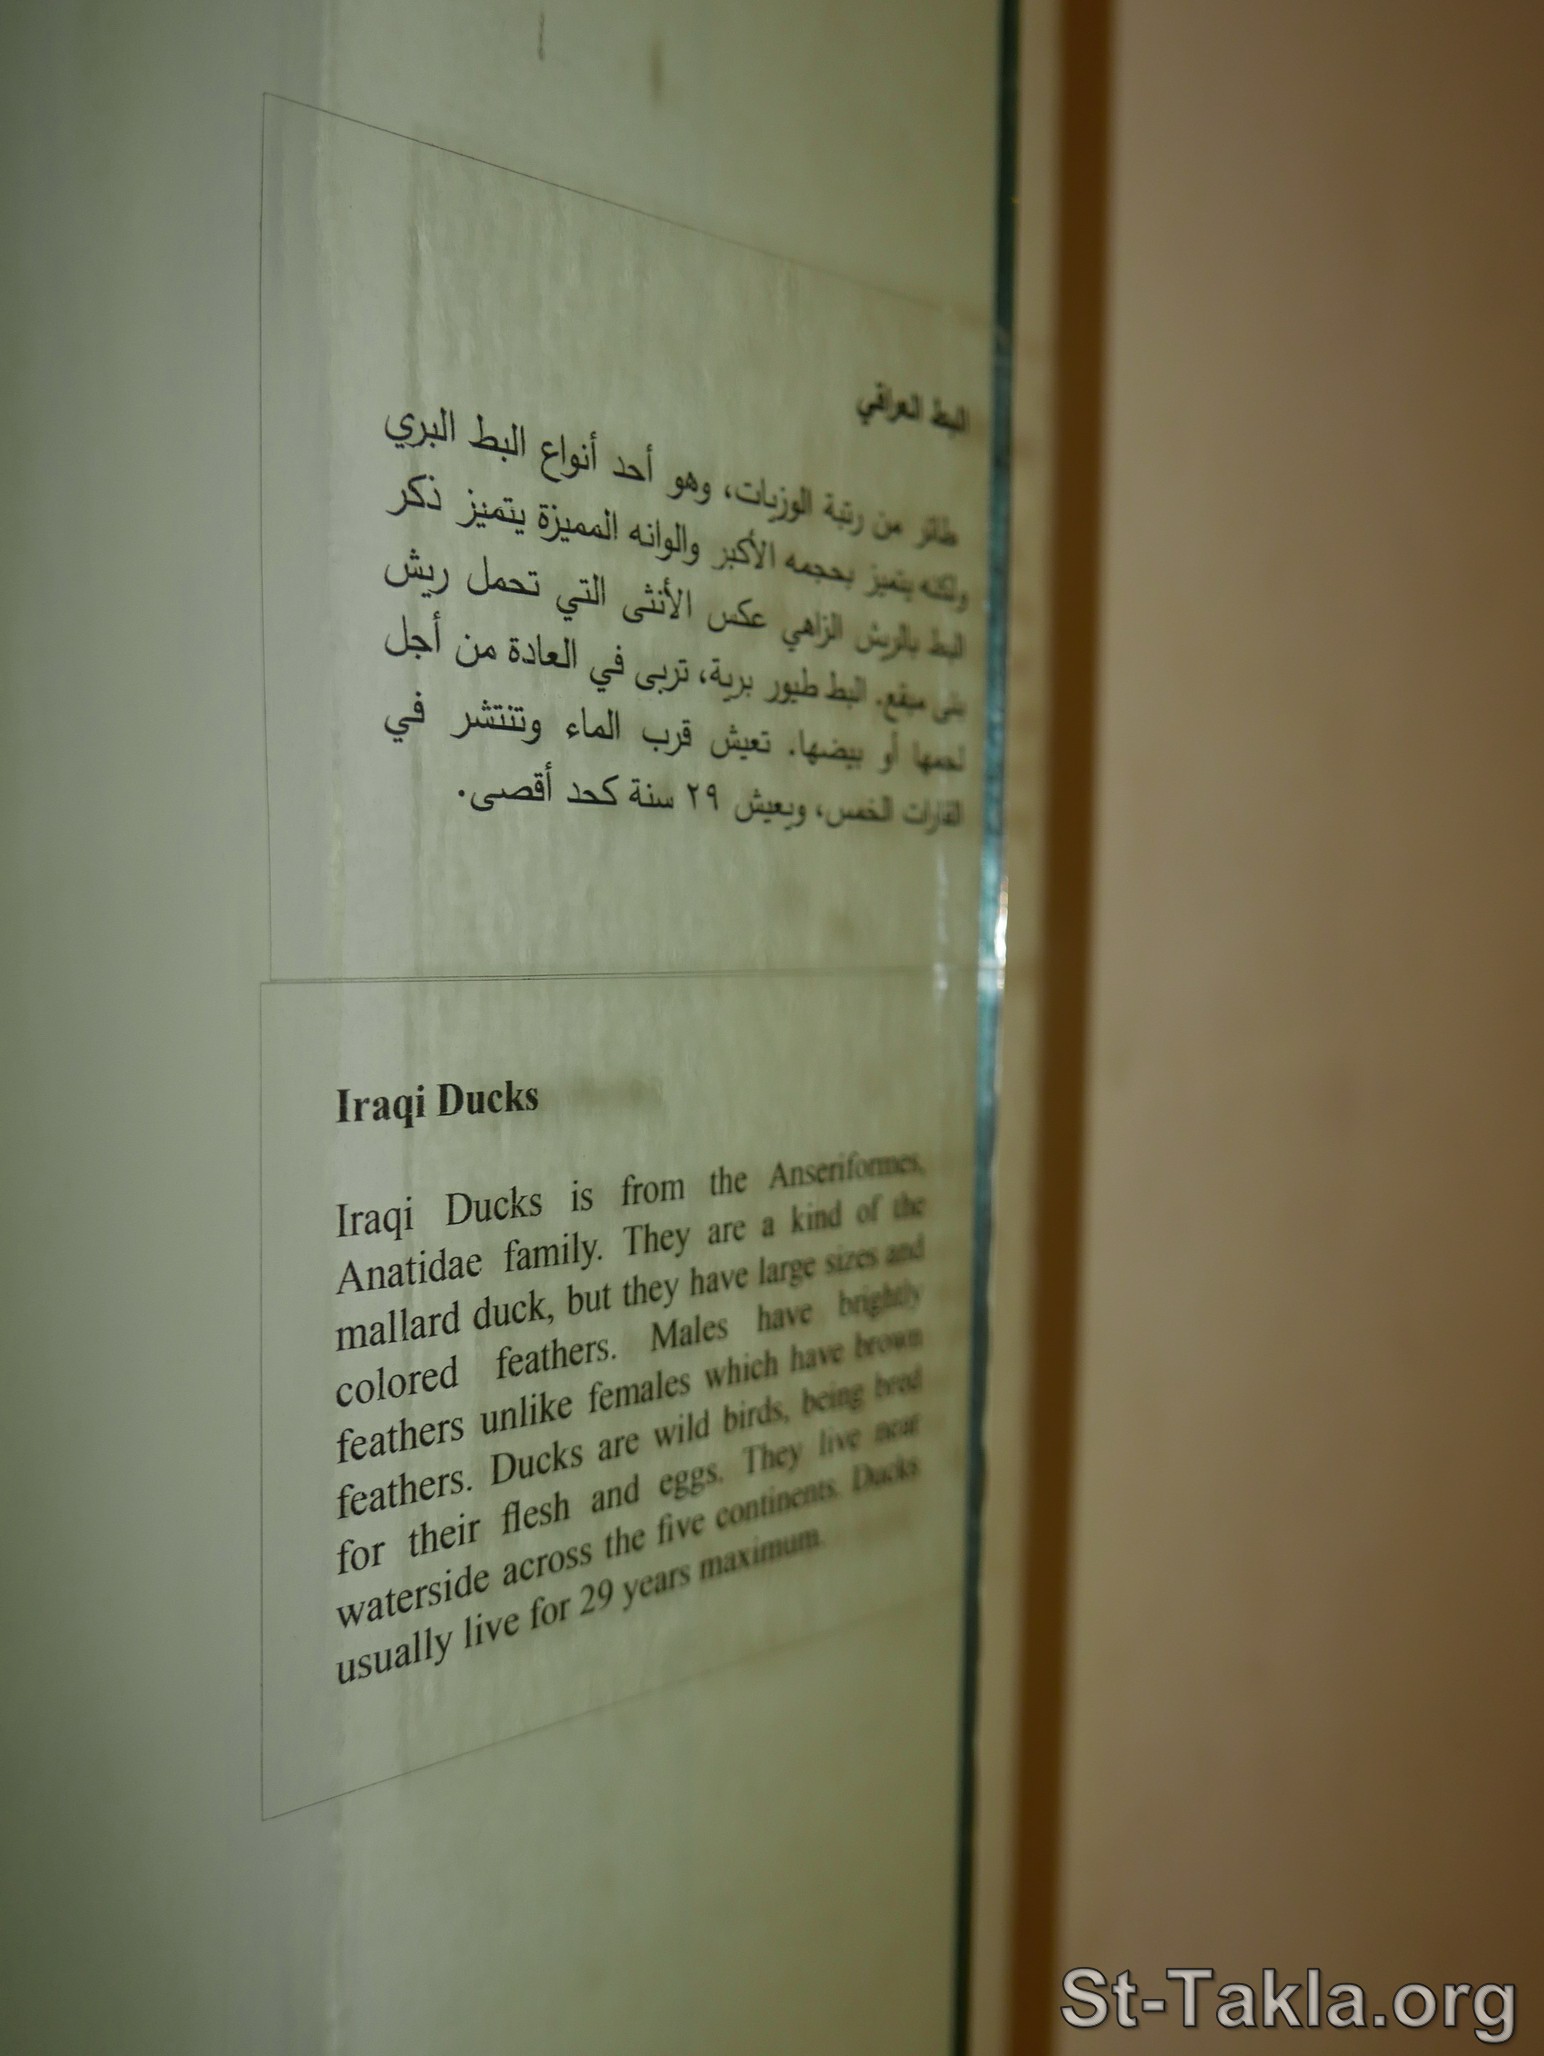 البط العراقي
طائر من رتبة الوزيات، وهو أحد أنواع البط البري
ولكنه يتميز بحجمه الأكبر والوانه المميزة يتميز ذكر
البط بالريش الزاهي عكس الأنثى التي تحمل ريش
بنى مبقع. البط طيور برية، تربى في العادة من أجل
لحمها أو بيضها. تعيش قرب الماء وتنتشر في
القارات الخمس، ويعيش ٢٩ سنة كحد أقصى.
Iraqi Ducks
Iraqi Ducks is from the Anseriformes,
Anatidae family. They are a kind of the
mallard duck, but they have large sizes and
colored feathers. Males have brightly
feathers unlike females which have brown
feathers. Ducks are wild birds, being bred
for their flesh and eggs. They live near
waterside across the five continents. Ducks
usually live for 29 years maximum.
St-Takla.org